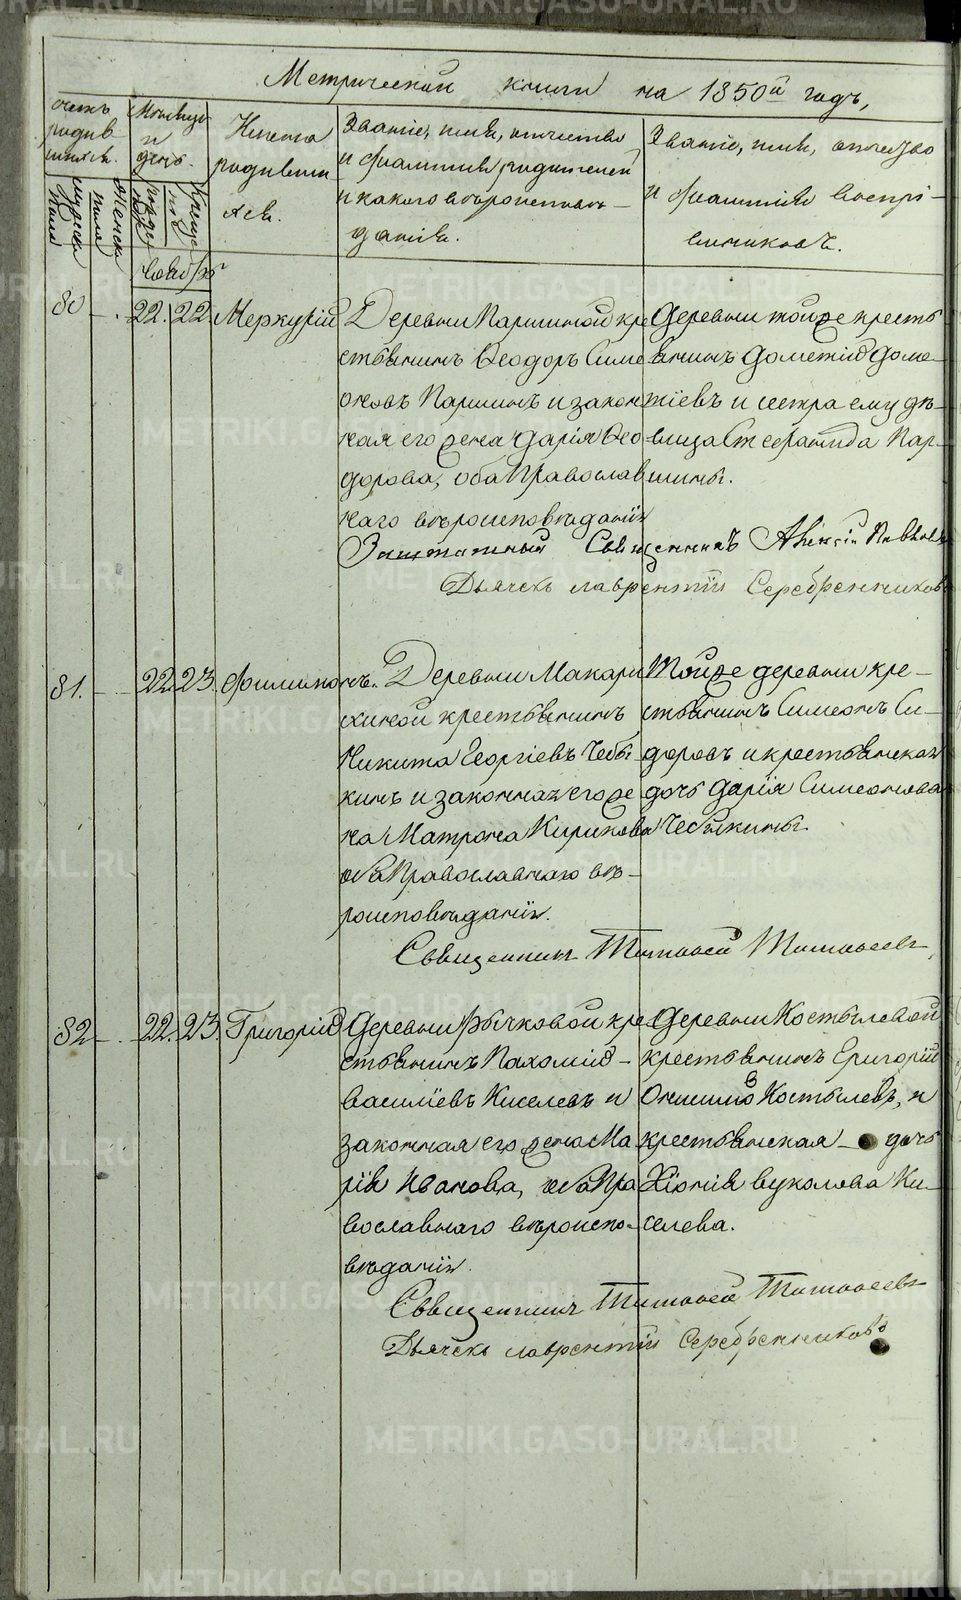 Метрической книги на 1850й годъ,
Счетъ родив шихся.
Мужеска пола
Женска пола
Месяцъ и день.
рожде
Креще
Имена родивши хся.
Званіе, имя, отчество и фамилія родителей и какого вѣроисповѣданія.
Званіе, имя, отчество и фамилія воспріемниковъ.
Ноября
80 — 22. 22. Меркурій
Деревни Паршиной кре
стьянинъ Ѳеодоръ Симе
оновъ Паршинъ и закон
ная его жена Дарія Ѳео
дорова, оба Православ
наго вѣроисповѣданія
Деревни той же кресть
янинъ Дометій Доме-
тіевъ и сестра ему дѣ-
вица Стефанида Пар-
шины.
Заштатный Священникъ Алексій
Дьячекъ Лаврентій Серебренниковъ
81. — 22 23. Филимонъ.
Деревни Макари
хиной крестьянинъ
Никита Георгіевъ Чебы
кинъ и законная его же
на Матрона Кирикова
оба Православнаго вѣ-
роисповѣданія.
Той же деревни кре-
стьянинъ Симеонъ Си-
доровъ и крестьянская
дочь Дарія Симеонова
Чебыкины.
Священникъ Тимоѳей Тимоѳеевъ
82 — 22. 23. Григорій
Деревни Бычковой кре
стьянинъ Пахомій —
Василіевъ Киселевъ и
законная его жена Ма
рія Иванова, оба Пра
вославнаго вѣроиспо-
вѣданія.
Деревни Костылевой
крестьянинъ Григорій
Костылевъ, и
крестьянская — дочь
Хіонія Вуколова Ки-
селева.
Священникъ Тимоѳей Тимоѳеевъ
Дьячекъ Лаврентій Серебренниковъ
METRIKI.GASO-URAL.RU